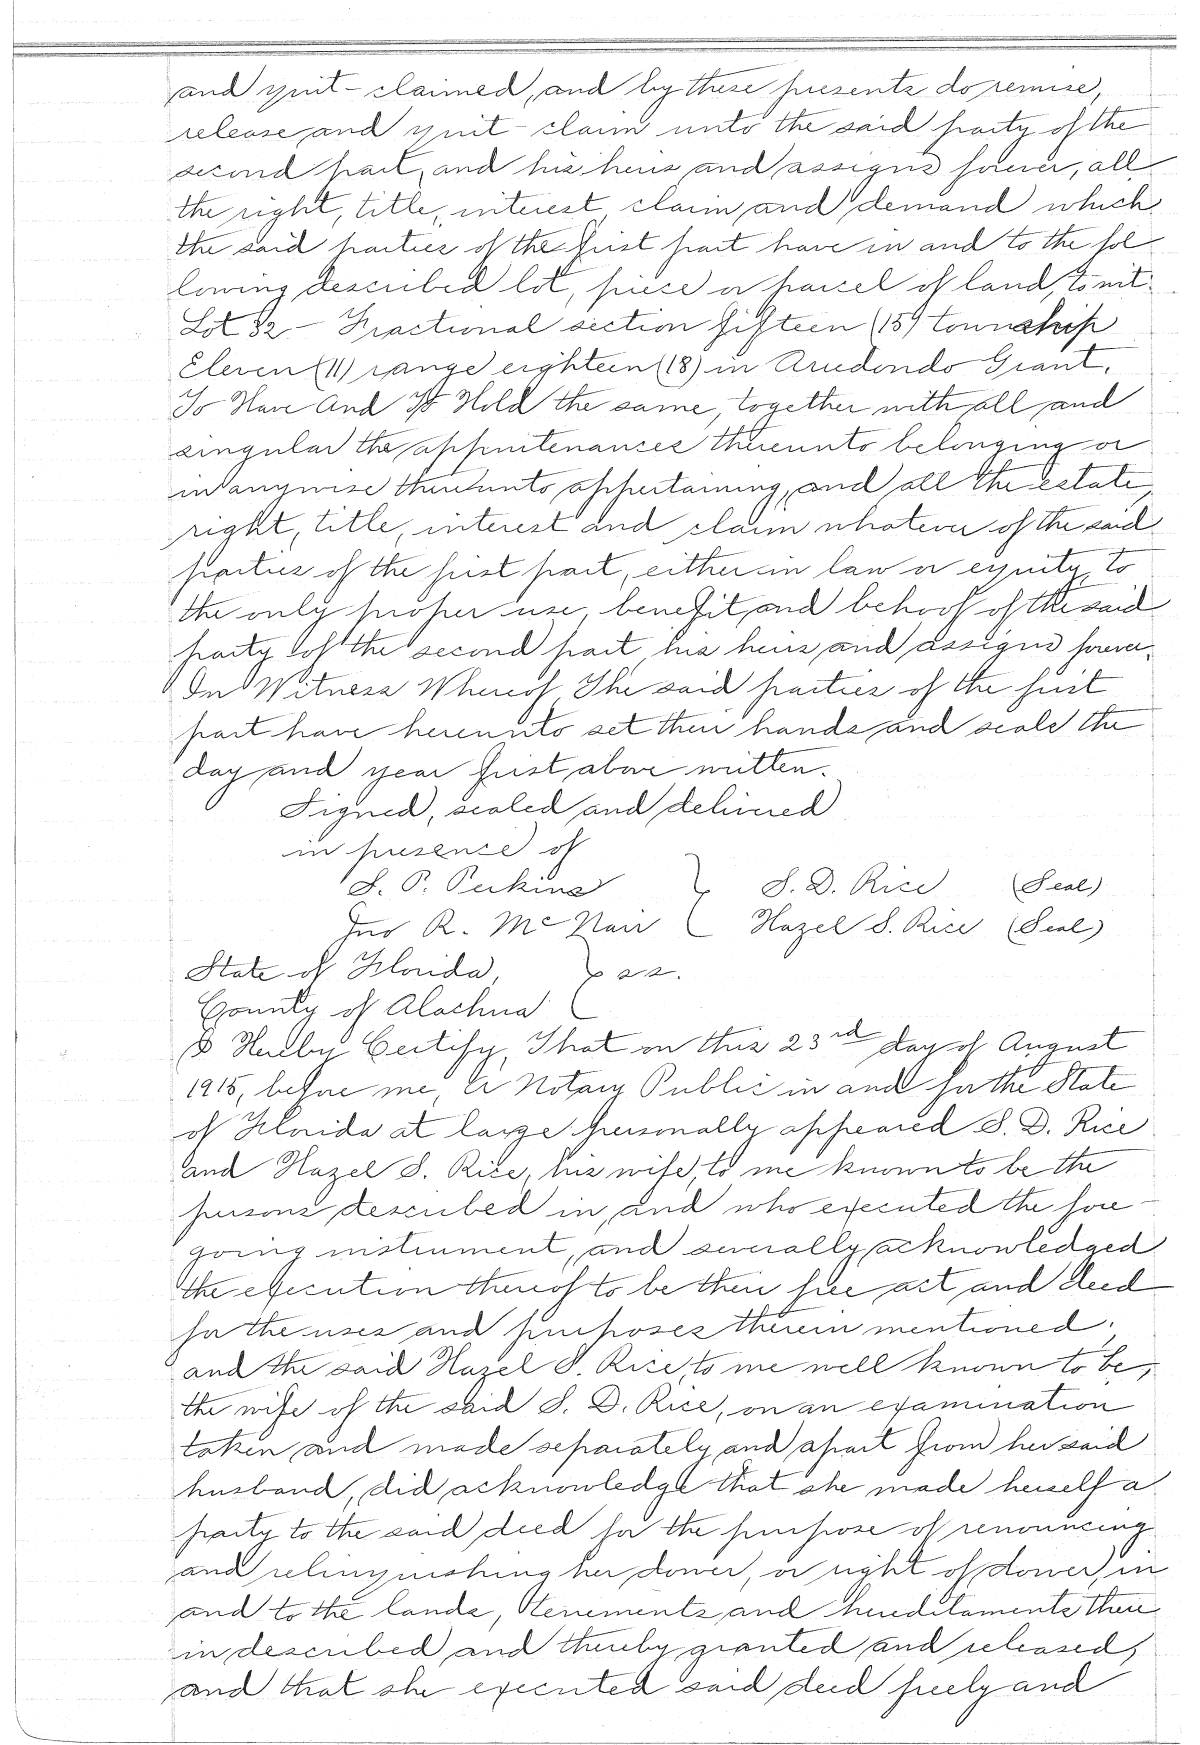 and quit-claimed, and by these presents do remise,
release and quit-claim unto the said party of the
second part, and his heirs and assigns forever, all
the right, title, interest claim and demand which
the said parties of the first part have in and to the fol-
lowing described lot, piece or parcel of land, to wit:
Lot 32 - Fractional section fifteen (15) township
Eleven (11) range eighteen (18) in Arredondo Grant.
To Have And To Hold the same, together with all and
singular the appurtenances thereunto belonging or
in anywise thereunto appertaining, and all the estate,
right, title, interest and claim whatever of the said
parties of the first part, either in law or equity, to
the only proper use, benefit and behoof of the said
party of the second part, his heirs and assigns forever.
In Witness Whereof, The said parties of the first
part have hereunto set their hands and seals the
day and year first above written.
Signed, sealed and delivered
in presence of
S. P. Perkins } S. D. Rice (Seal)
Jno R. McNair Hazel S. Rice (Seal)
State of Florida, } ss.
County of Alachua
I Hereby Certify, That on this 23rd day of August
1915, before me, a Notary Public in and for the State
of Florida at large personally appeared S. D. Rice
and Hazel S. Rice, his wife, to me known to be the
persons described in, and who executed the fore-
going instrument, and severally acknowledged
the execution thereof to be their free act and deed
for the uses and purposes therein mentioned;
and the said Hazel S. Rice, to me well known to be,
the wife of the said S. D. Rice, on an examination
taken and made separately and apart from her said
husband, did acknowledge that she made herself a
party to the said deed for the purpose of renouncing
and relinquishing her dower, or right of dower, in
and to the lands, tenements and hereditaments there
in described and thereby granted and released,
and that she executed said deed freely and